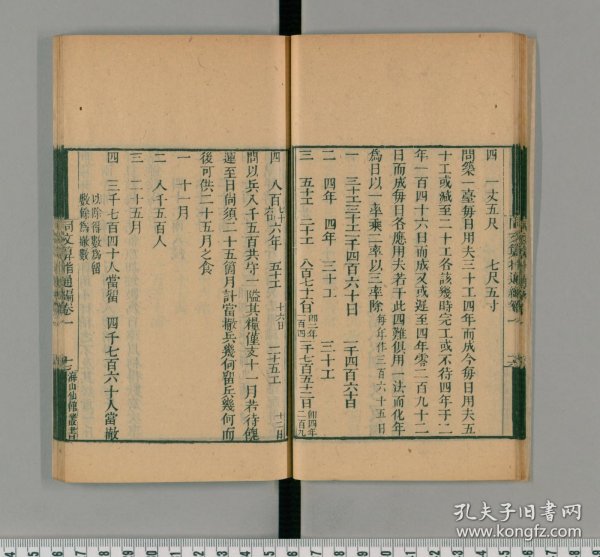 四 一丈五尺 七尺五寸
問築一臺每日用夫三十工四年而成今每日用夫五
十工或減至二十工各該幾時完工或不待四年于二
年一百四十六日而成又或遲至四年零二百九十二
日而成每日各應用夫若干此四難俱用一法而化年
為日以一率乘二率以三率除 每年作三百六十五日
一 三十工 三十工 一千四百六十日 一千四百六十日
二 四年 四年 三十工 三十工
三 五十工 二十工 八百七十六日 一千七百五十二日
四 五十工 二十五工
問以兵八千五百共守一隘其糧僅支十一月若待餽
運至日尚須二十五箇月計當撤兵幾何留兵幾何而
後可供二十五月之食
一 十一月
二 八千五百人
三 二十五月
四 三千七百四十人當留 四千七百六十人當撤
以除得數為留
數餘為撤數
同文算指通編卷一
海山仙館叢書
孔夫子旧书网
www.kongfz.com